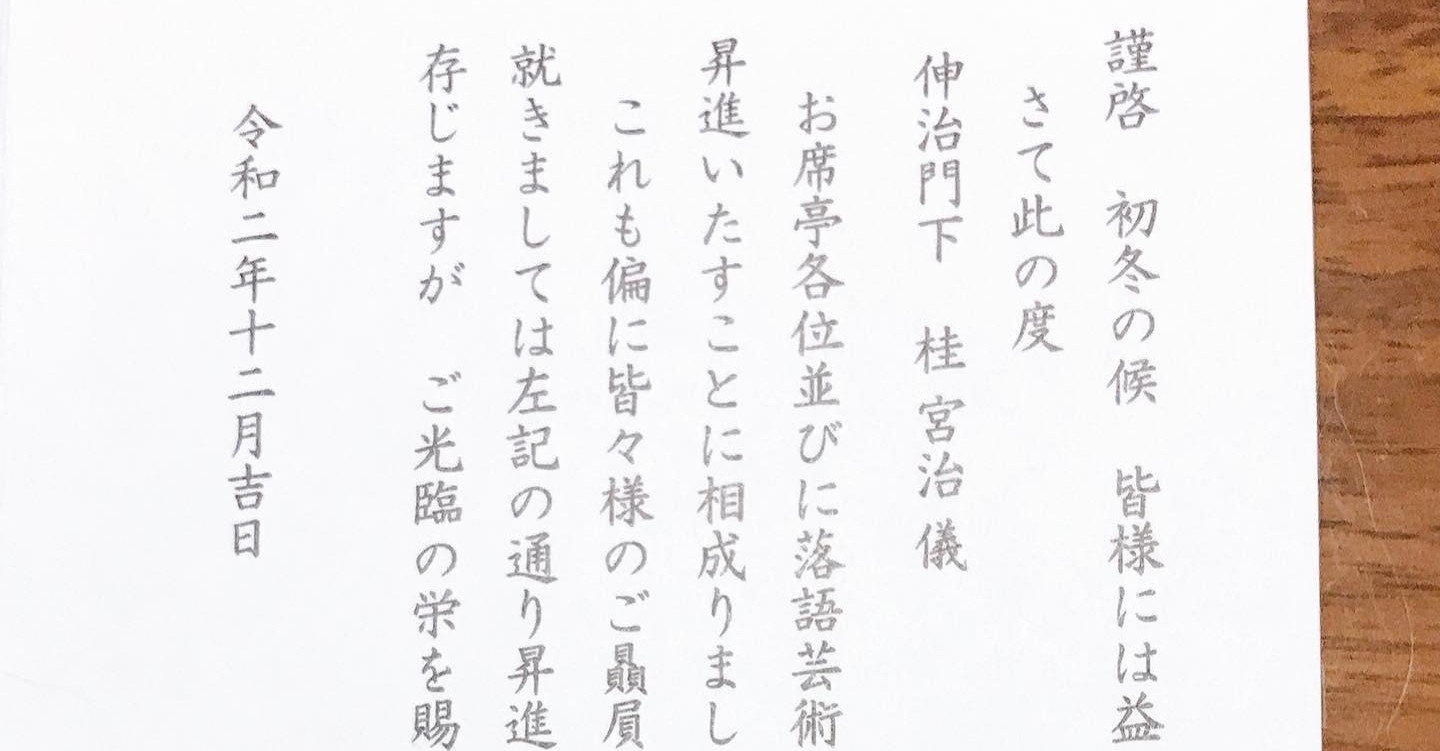 謹啓　初冬の候　皆様には益
さて此の度
伸治門下　桂 宮治 儀
お席亭各位並びに落語芸術
昇進いたすことに相成りまし
これも偏に皆々様のご贔屓
就きましては左記の通り昇進
存じますが　ご光臨の栄を賜
令和二年十二月吉日